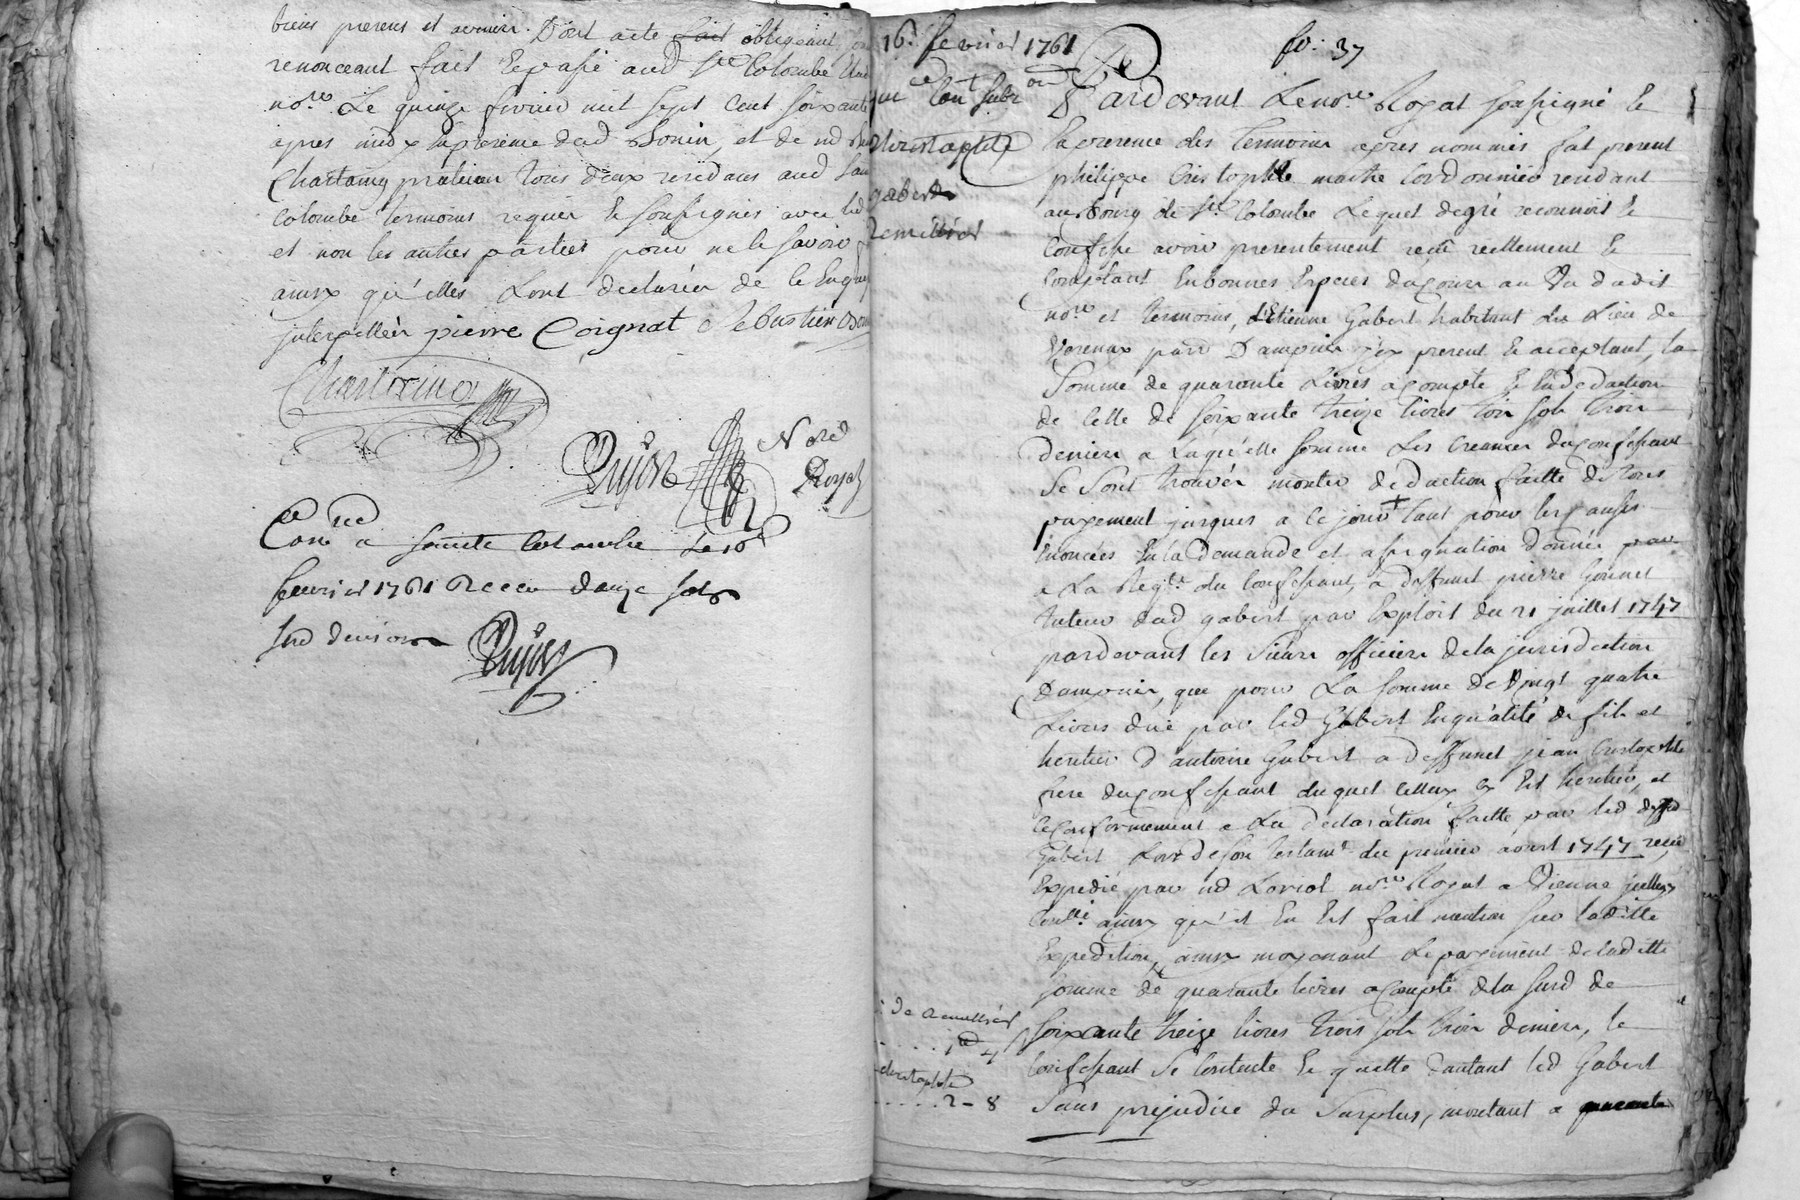 biens presens et avenir. Dont acte fait obligeant
renonceant fait Et passé aud Ste Colombe
nore. Le quinze fevrier mil sept cent soixante
apres midy En presence dud Bonin, et de
Chartaing praticien tous deux residans aud
Colombe temoins requis Et soussignés avec led
et non les autres parties pour ne le savoir
ainsy qu'elles L'ont declarées de ce Enquis
interpellées pierre Coignat Sebastien
Chartaing
Dujon Nore
Royal
Conlé a saincte Colombe le 16e
fevrier 1761 Receu douze sols
Six deniers Dujon
16e fevrier 1761
fo. 37
christophle
gabert
de
christophle
2 - 8
Pardevant Le nore Royal soussigné Et
En presence des temoins apres nommés fut present
philippe Cristophle maitre Cordonnier residant
au bourg de Ste Colombe Lequel de gré reconnoit Et
Confesse avoir presentement reçû reellement Et
Comptant En bonnes Especes du cours au Vû dudit
nore et temoins, d'Etienne Gabert habitant du Lieu de
Verenay parr D'ampuis icy present Et acceptant, la
Somme de quarante Livres a compte Et En deduction
de Celle de soixante treize livres trois sols trois
deniers a Laquelle somme Les creances du confessant
Se sont trouvées monter deduction faitte de tous
payement jusques a ce jour + tant pour les causes
Enoncées En la Demande et assignation donnée par
a La Reqte. du Confessant, a deffunt pierre Gonnet
tuteur dud gabert par Exploit du 21 juillet 1747
pardevant les Sieurs officiers de la jurisdiction
Dampuis, que pour La somme de Vingt quatre
Livres duë par led Gabert En qualité de fils et
heritier d'antoine Gabert a deffunct jean Cristophle
frere du confessant duquel Celluy cy Est heritier, et
Conformement a La declaration faitte par led deffd
Gabert Lors de son testamt. du premier aoust 1747 reçu
Expedié par Md Loriol nore Royal a Vienne
ainsy qu'il En Est fait mention sur laditte
Expedition, ainsy moyenant Le payement de laditte
somme de quarante livres a compte de la susd de
soixante treize livres trois sols trois deniers, le
Confessant Se Contente Et quitte d'autant led Gabert
Sans prejudice du Surplus, montant a quarante